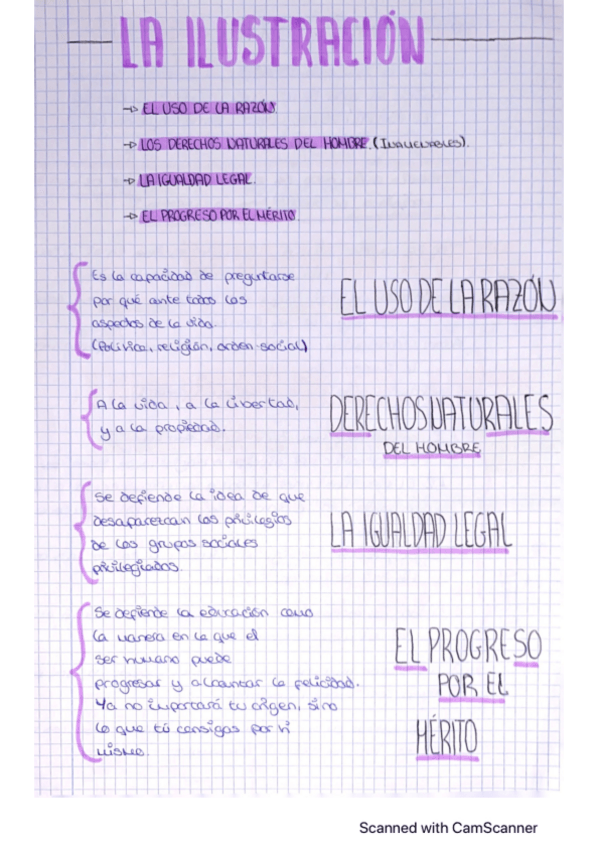 LA ILUSTRACIÓN
→ EL USO DE LA RAZÓN
→ LOS DERECHOS NATURALES DEL HOMBRE. (Inalienables).
→ LA IGUALDAD LEGAL.
→ EL PROGRESO POR EL MÉRITO
Es la capacidad de preguntarse
por qué ante todos los
aspectos de la vida.
(Política, religión, orden social)
EL USO DE LA RAZÓN
A la vida, a la libertad,
y a la propiedad.
DERECHOS NATURALES
DEL HOMBRE
Se defiende la idea de que
desaparezcan los privilegios
de los grupos sociales
privilegiados.
LA IGUALDAD LEGAL
Se defiende la educación como
la manera en la que el
ser humano puede
progresar y alcanzar la felicidad.
Ya no importará tu origen, sino
lo que tú consigas por ti
mismo.
EL PROGRESO
POR EL
MÉRITO
Scanned with CamScanner